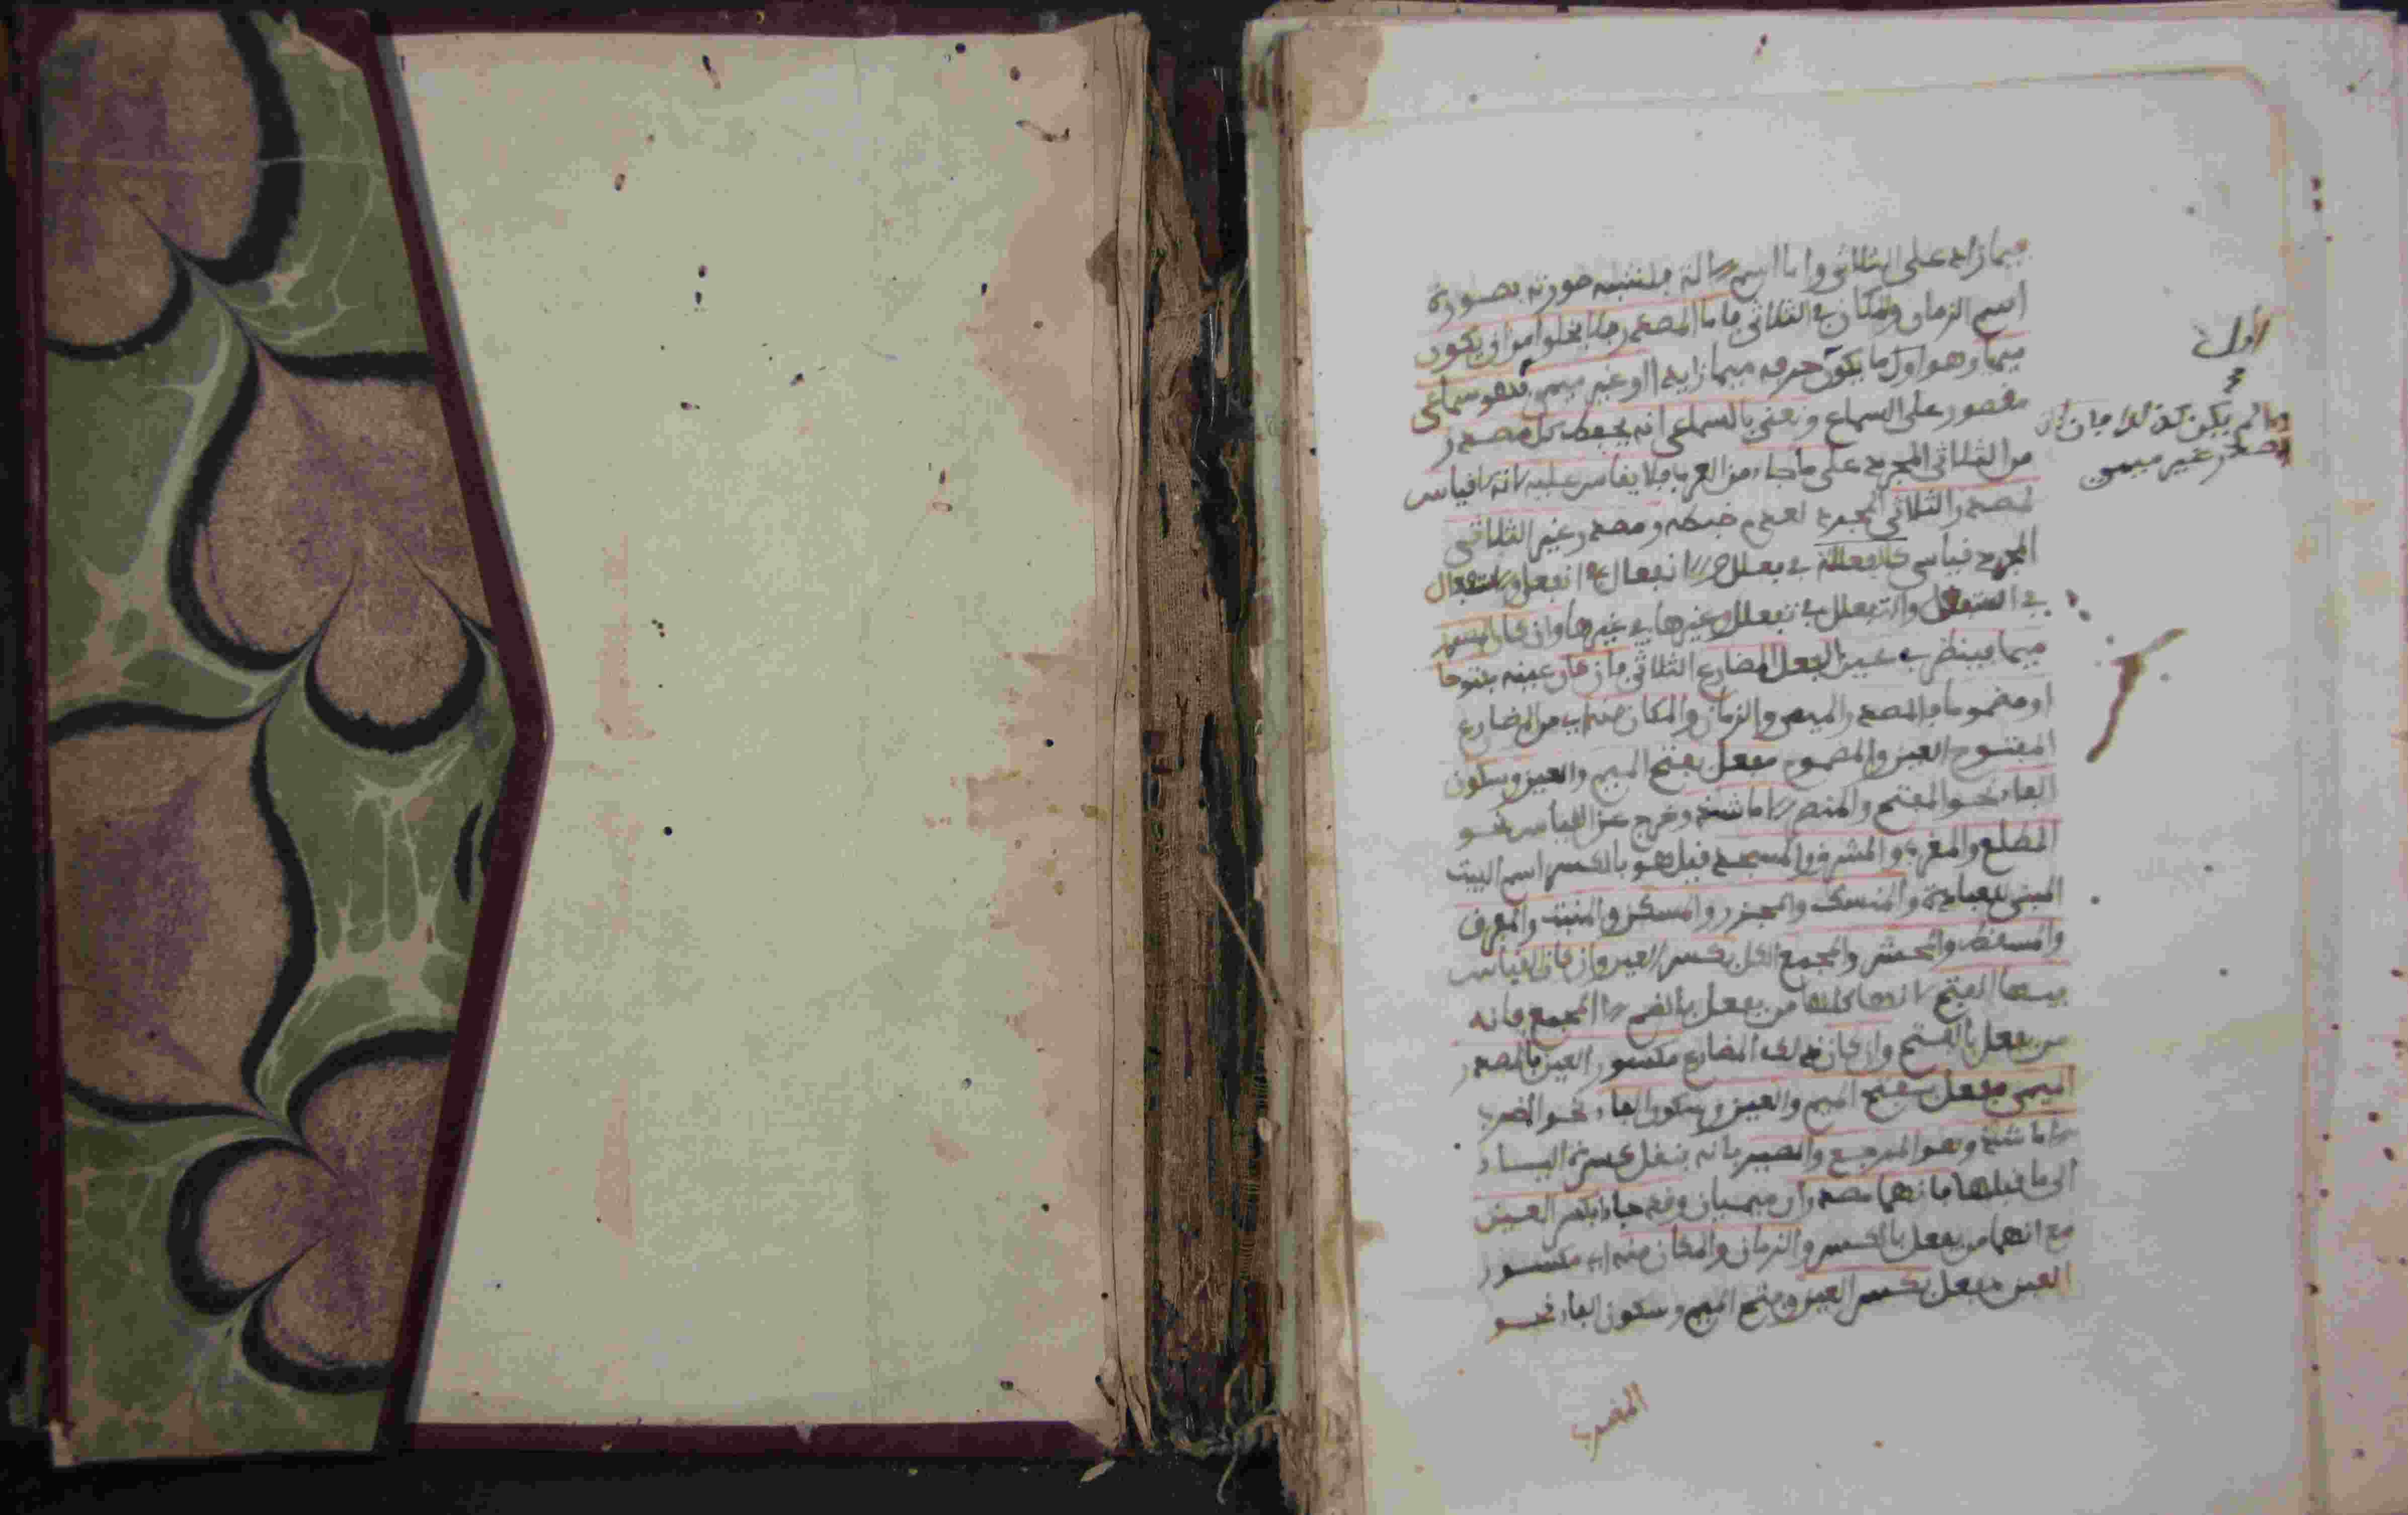 فيما زاد على الثلاثي واما اسم الالة فلشبه صورته بصورة
اسم الزمان والمكان في الثلاثي فاما المصدر فلا يخلوا من ان يكون
ميميا وهو اول ما يكون حرفه ميما زايدا او غير ميمي فهو سماعي
مقصور على السماع ونعني بالسماعي انه يحفظ كل مصدر
من الثلاثي المجرد على ما جاء من العرب فلا يقاس عليه لانه لا قياس
لمصدر الثلاثي المجرد لعدم ضبطه ومصدر غير الثلاثي
المجرد قياسي كالفعللة في فعلل والانفعال في انفعل والاستفعال
في استفعل والتفعلل في تفعلل وغيرها في غيرها وان كان المصدر
ميميا فينظر في عين الفعل المضارع الثلاثي فان كان عينه مفتوحا
او مضموما فالمصدر الميمي والزمان والمكان منه اي من المضارع
المفتوح العين والمضموم مفعل بفتح الميم والعين وسكون
الفاء نحو المفتح والمنصر الا ما شذ وخرج عن القياس نحو
المطلع والمغرب والمشرق والمسجد قيل هو بالكسر اسم البيت
المبني للعبادة والمنسك والمجزر والمسكن والمنبت والمفرق
والمسقط والمحشر والمجمع الكل بكسر العين وان كان القياس
فيها الفتح لانها كلها من يفعل بالضم الا المجمع فانه
من يفعل بالفتح وان كان ذلك المضارع مكسور العين فالمصدر
الميمي مفعل بفتح الميم والعين وسكون الفاء نحو المضرب
الا ما شذ وهو المرجع والمصير فانه ينقل كسرة الياء
الى ما قبلها فانهما مصدران ميميان وقد جاءا بكسر العين
مع انهما من يفعل بالكسر والزمان والمكان منه اي مكسور
العين مفعل بكسر العين وفتح الميم وسكون الفاء نحو
المضرب
اول
وما لم يكن كذلك فان كان
مصدر غير ميمي